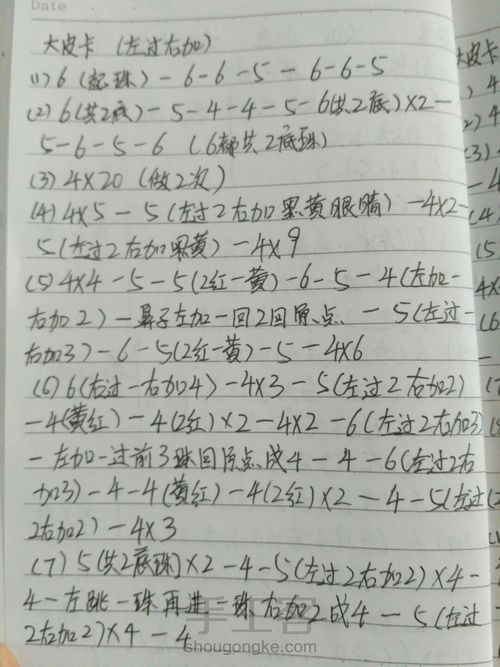 Date
大皮卡 (左过右加)
(1) 6 (起珠) - 6 - 6 - 5 - 6 - 6 - 5
(2) 6(共2底) - 5 - 4 - 4 - 5 - 6(共2底)×2 -
5 - 6 - 5 - 6 (6都共2底珠)
(3) 4×20 (做2次)
(4) 4×5 - 5 (左过2右加黑黄眼睛) - 4×2 -
5 (左过2右加黑黄) - 4×9
(5) 4×4 - 5 - 5 (2红一黄) - 6 - 5 - 4 (左加一
右加2) - 鼻子左加一回2回原点 - 5 (左过一
右加3) - 6 - 5 (2红一黄) - 5 - 4×6
(6) 6 (右过一右加4) - 4×3 - 5 (左过2右加2)
- 4(黄红) - 4 (2红)×2 - 4×2 - 6 (左过2右加3)
- 左加一过前3珠回原点成4 - 4 - 6 (左过2右
加3) - 4 - 4 (黄红) - 4 (2红)×2 - 4 - 5 (左过
2右加2) - 4×3
(7) 5 (共2底珠)×2 - 4 - 5 (左过2右加2)×4 -
4 - 左跳一珠再进一珠右加2成4 - 5 (左过
2右加2)×4 - 4
大皮卡
手工客
shougongke.com